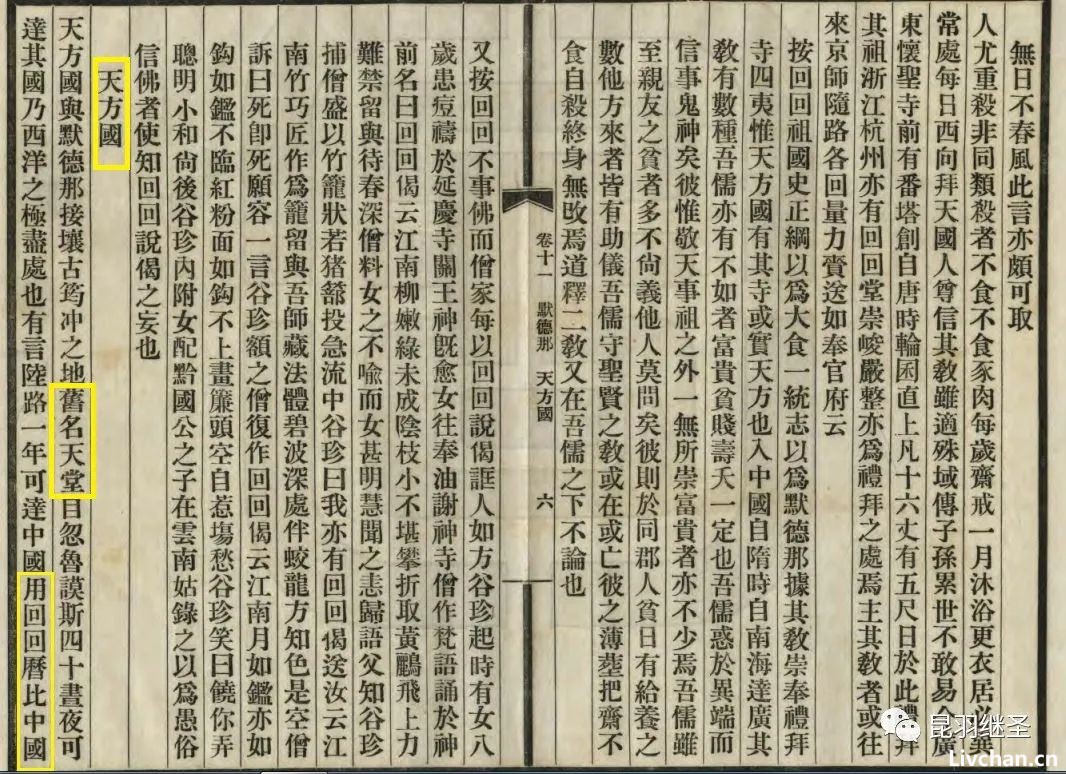 無日不春風此言亦頗可取
人尤重殺非同類殺者不食不食豕肉每歲齋戒一月沐浴更衣居必異
常處每日西向拜天國人尊信其敎雖適殊域傳子孫累世不敢易今廣
東懷聖寺前有番塔創自唐時輪囷直上凡十六丈有五尺日於此禮拜
其祖浙江杭州亦有回回堂崇峻嚴整亦爲禮拜之處焉主其敎者或往
來京師隨路各回量力賫送如奉官府云
按回回祖國史正綱以爲大食一統志以爲默德那據其敎崇奉禮拜
寺四夷惟天方國有其寺或實天方也入中國自隋時自南海達廣其
敎有數種吾儒亦有不如者富貴貧賤壽夭一定也吾儒惑於異端而
信事鬼神矣彼惟敬天事祖之外一無所崇富貴者亦不少焉吾儒雖
至親友之貧者多不尚義他人莫問矣彼則於同郡人貧日有給養之
數他方來者皆有助儀吾儒守聖賢之敎或在或亡彼之薄葬把齋不
食自殺終身無改焉道釋二敎又在吾儒之下不論也
卷十一 默德那 天方國 六
又按回回不事佛而僧家每以回回說偈誑人如方谷珍起時有女八
歲患痘禱於延慶寺關王神旣愈女往奉油謝神寺僧作梵語誦於神
前名曰回回偈云江南柳嫩綠未成陰枝小不堪攀折取黃鸝飛上力
難禁留與待春深僧料女之不喻而女甚明慧聞之恚歸語父知谷珍
捕僧盛以竹籠狀若猪篰投急流中谷珍曰我亦有回回偈送汝云江
南竹巧匠作爲籠留與吾師藏法體碧波深處伴蛟龍方知色是空僧
訴曰死卽死願容一言谷珍額之僧復作回回偈云江南月如鑑亦如
鈎如鑑不臨紅粉面如鈎不上畫簾頭空自惹塲愁谷珍笑曰饒你弄
聰明小和尙後谷珍內附女配黔國公之子在雲南姑錄之以爲愚俗
信佛者使知回回說偈之妄也
天方國
天方國與默德那接壤古筠冲之地舊名天堂自忽魯謨斯四十晝夜可
達其國乃西洋之極盡處也有言陸路一年可達中國用回回曆比中國
昆羽继圣
Livchan.cn